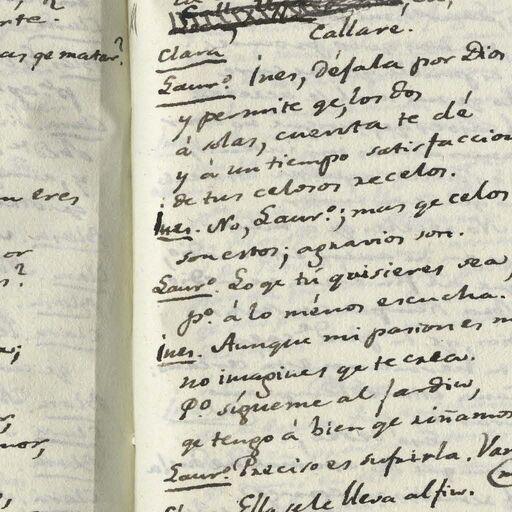 rte.
as qe matar?
n eres
or
s?
nor,
Callaré.
Clara
Laurº. Ines, déjala por Dios
y permite qe, los dos
á solas, cuenta te dé
y á un tiempo satisfaccion
de tus celosos recelos.
Ines. No, Laurº.; mas qe celos
son estos; agravios son.
Laurº. Lo qe tú quisieres sea,
pº á lo ménos escucha.
Ines. Aunque mi pasion es m
no imagines qe te crea.
Pº sígueme al jardin,
qe tengo á bien qe riñamos
Laurº. Preciso es sufrirla. Vam
Ella se le lleva al fin.